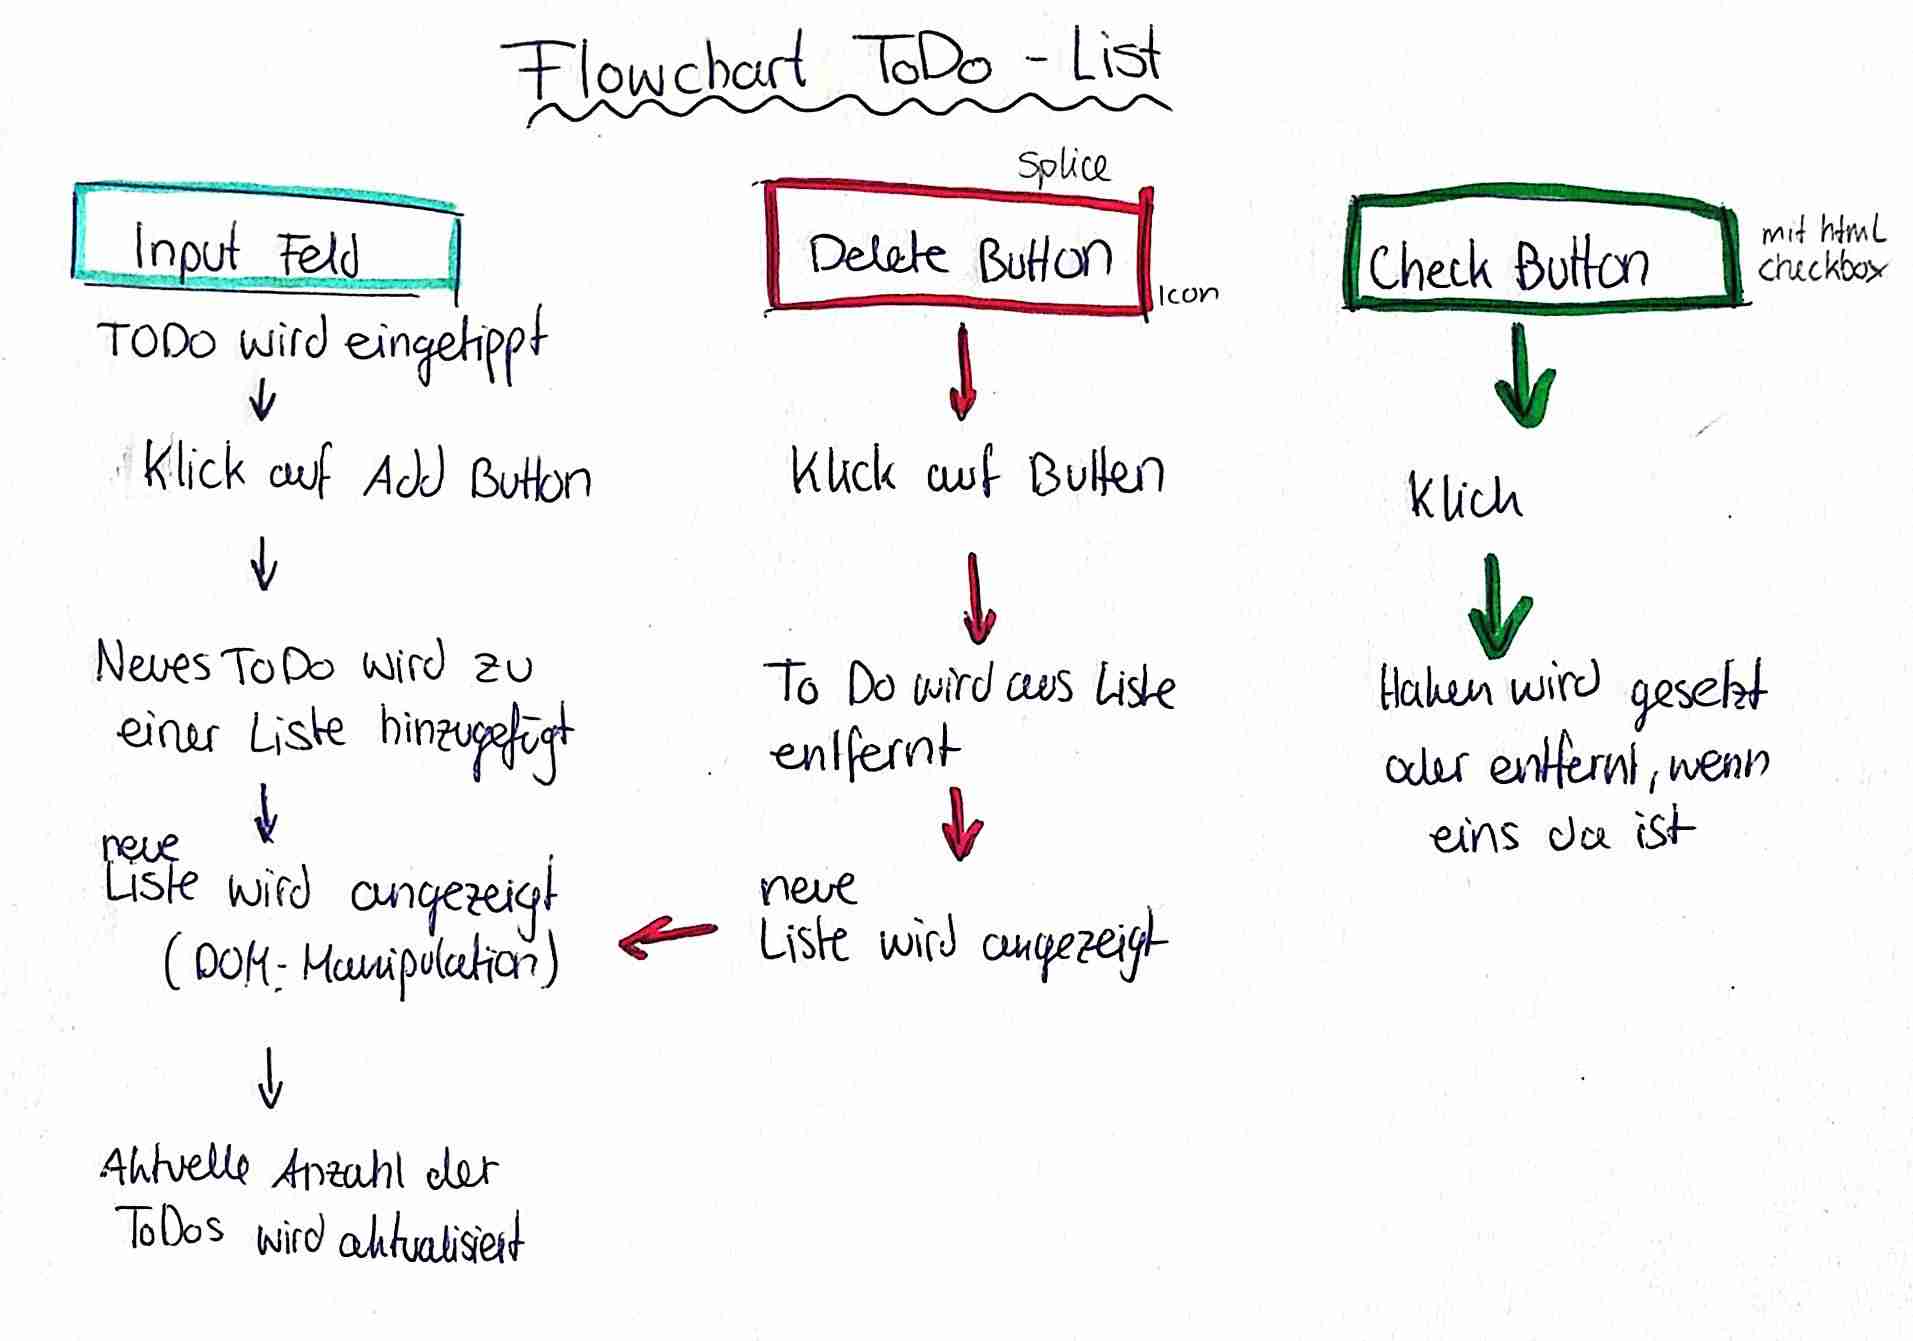 Flowchart ToDo - List
Input Feld
TODO wird eingetippt
Klick auf Add Button
Neues ToDo wird zu
einer Liste hinzugefügt
neue
Liste wird angezeigt
(DOM-Manipulation)
Aktuelle Anzahl der
ToDos wird aktualisiert
Splice
Delete Button
Icon
Klick auf Button
To Do wird aus Liste
entfernt
neue
Liste wird angezeigt
Check Button
mit html
checkbox
Klick
Haken wird gesetzt
oder entfernt, wenn
eins da ist